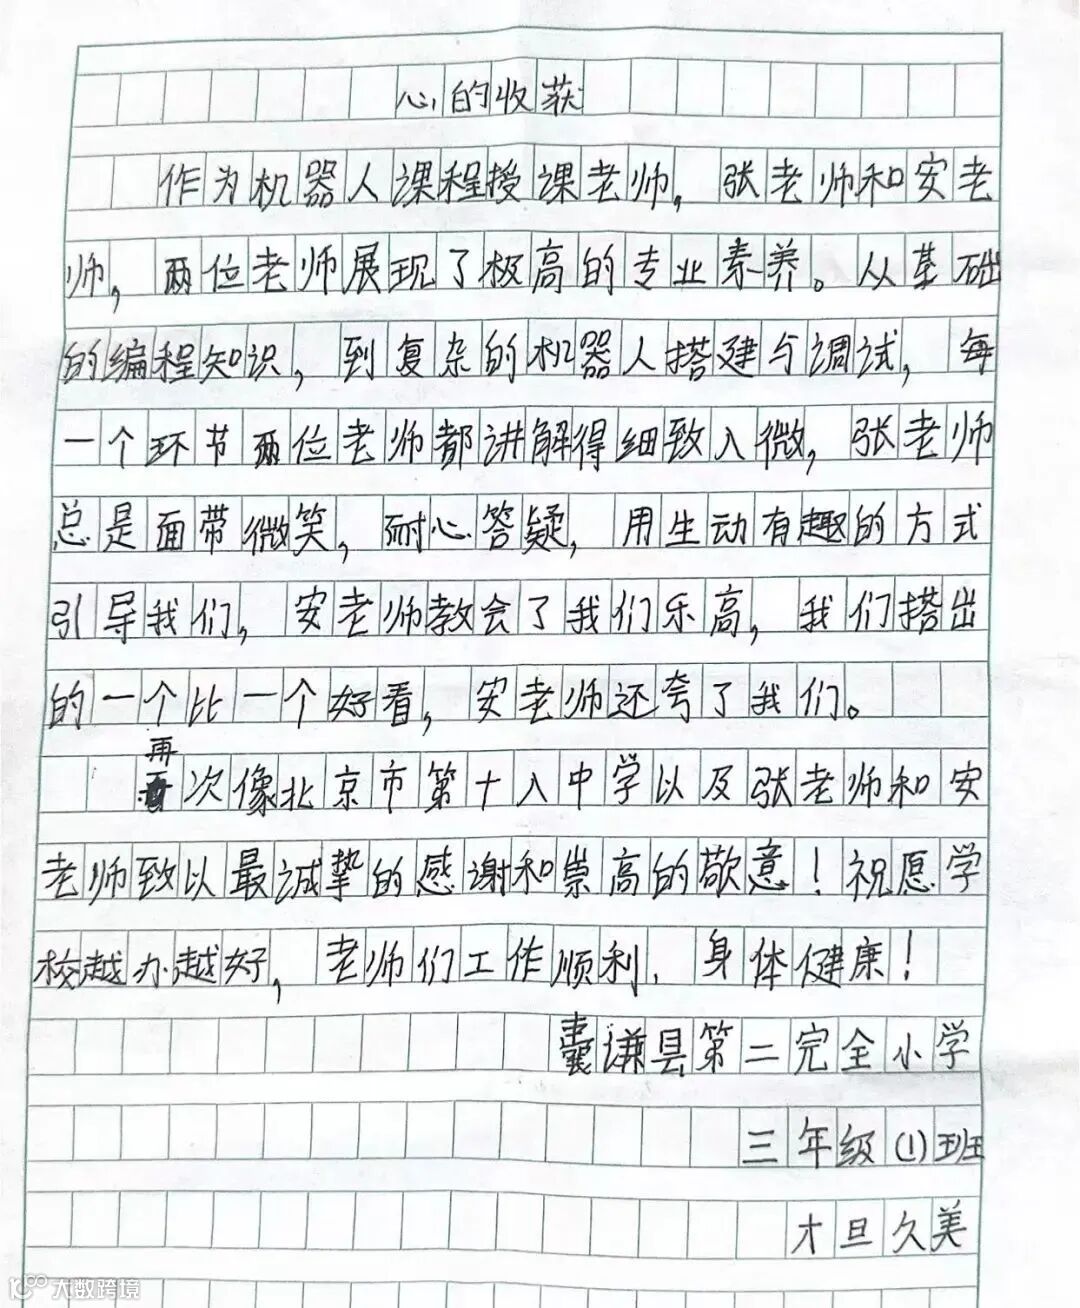 心的收获
作为机器人课程授课老师，张老师和安老
师，两位老师展现了极高的专业素养。从基础
的编程知识，到复杂的机器人搭建与调试，每
一个环节两位老师都讲解得细致入微，张老师
总是面带微笑，耐心答疑，用生动有趣的方式
引导我们，安老师教会了我们乐高，我们搭出
的一个比一个好看，安老师还夸了我们。
再次像北京市第十八中学以及张老师和安
老师致以最诚挚的感谢和崇高的敬意！祝愿学
校越办越好，老师们工作顺利、身体健康！
囊谦县第二完全小学
三年级(1)班
才旦久美
大数跨境